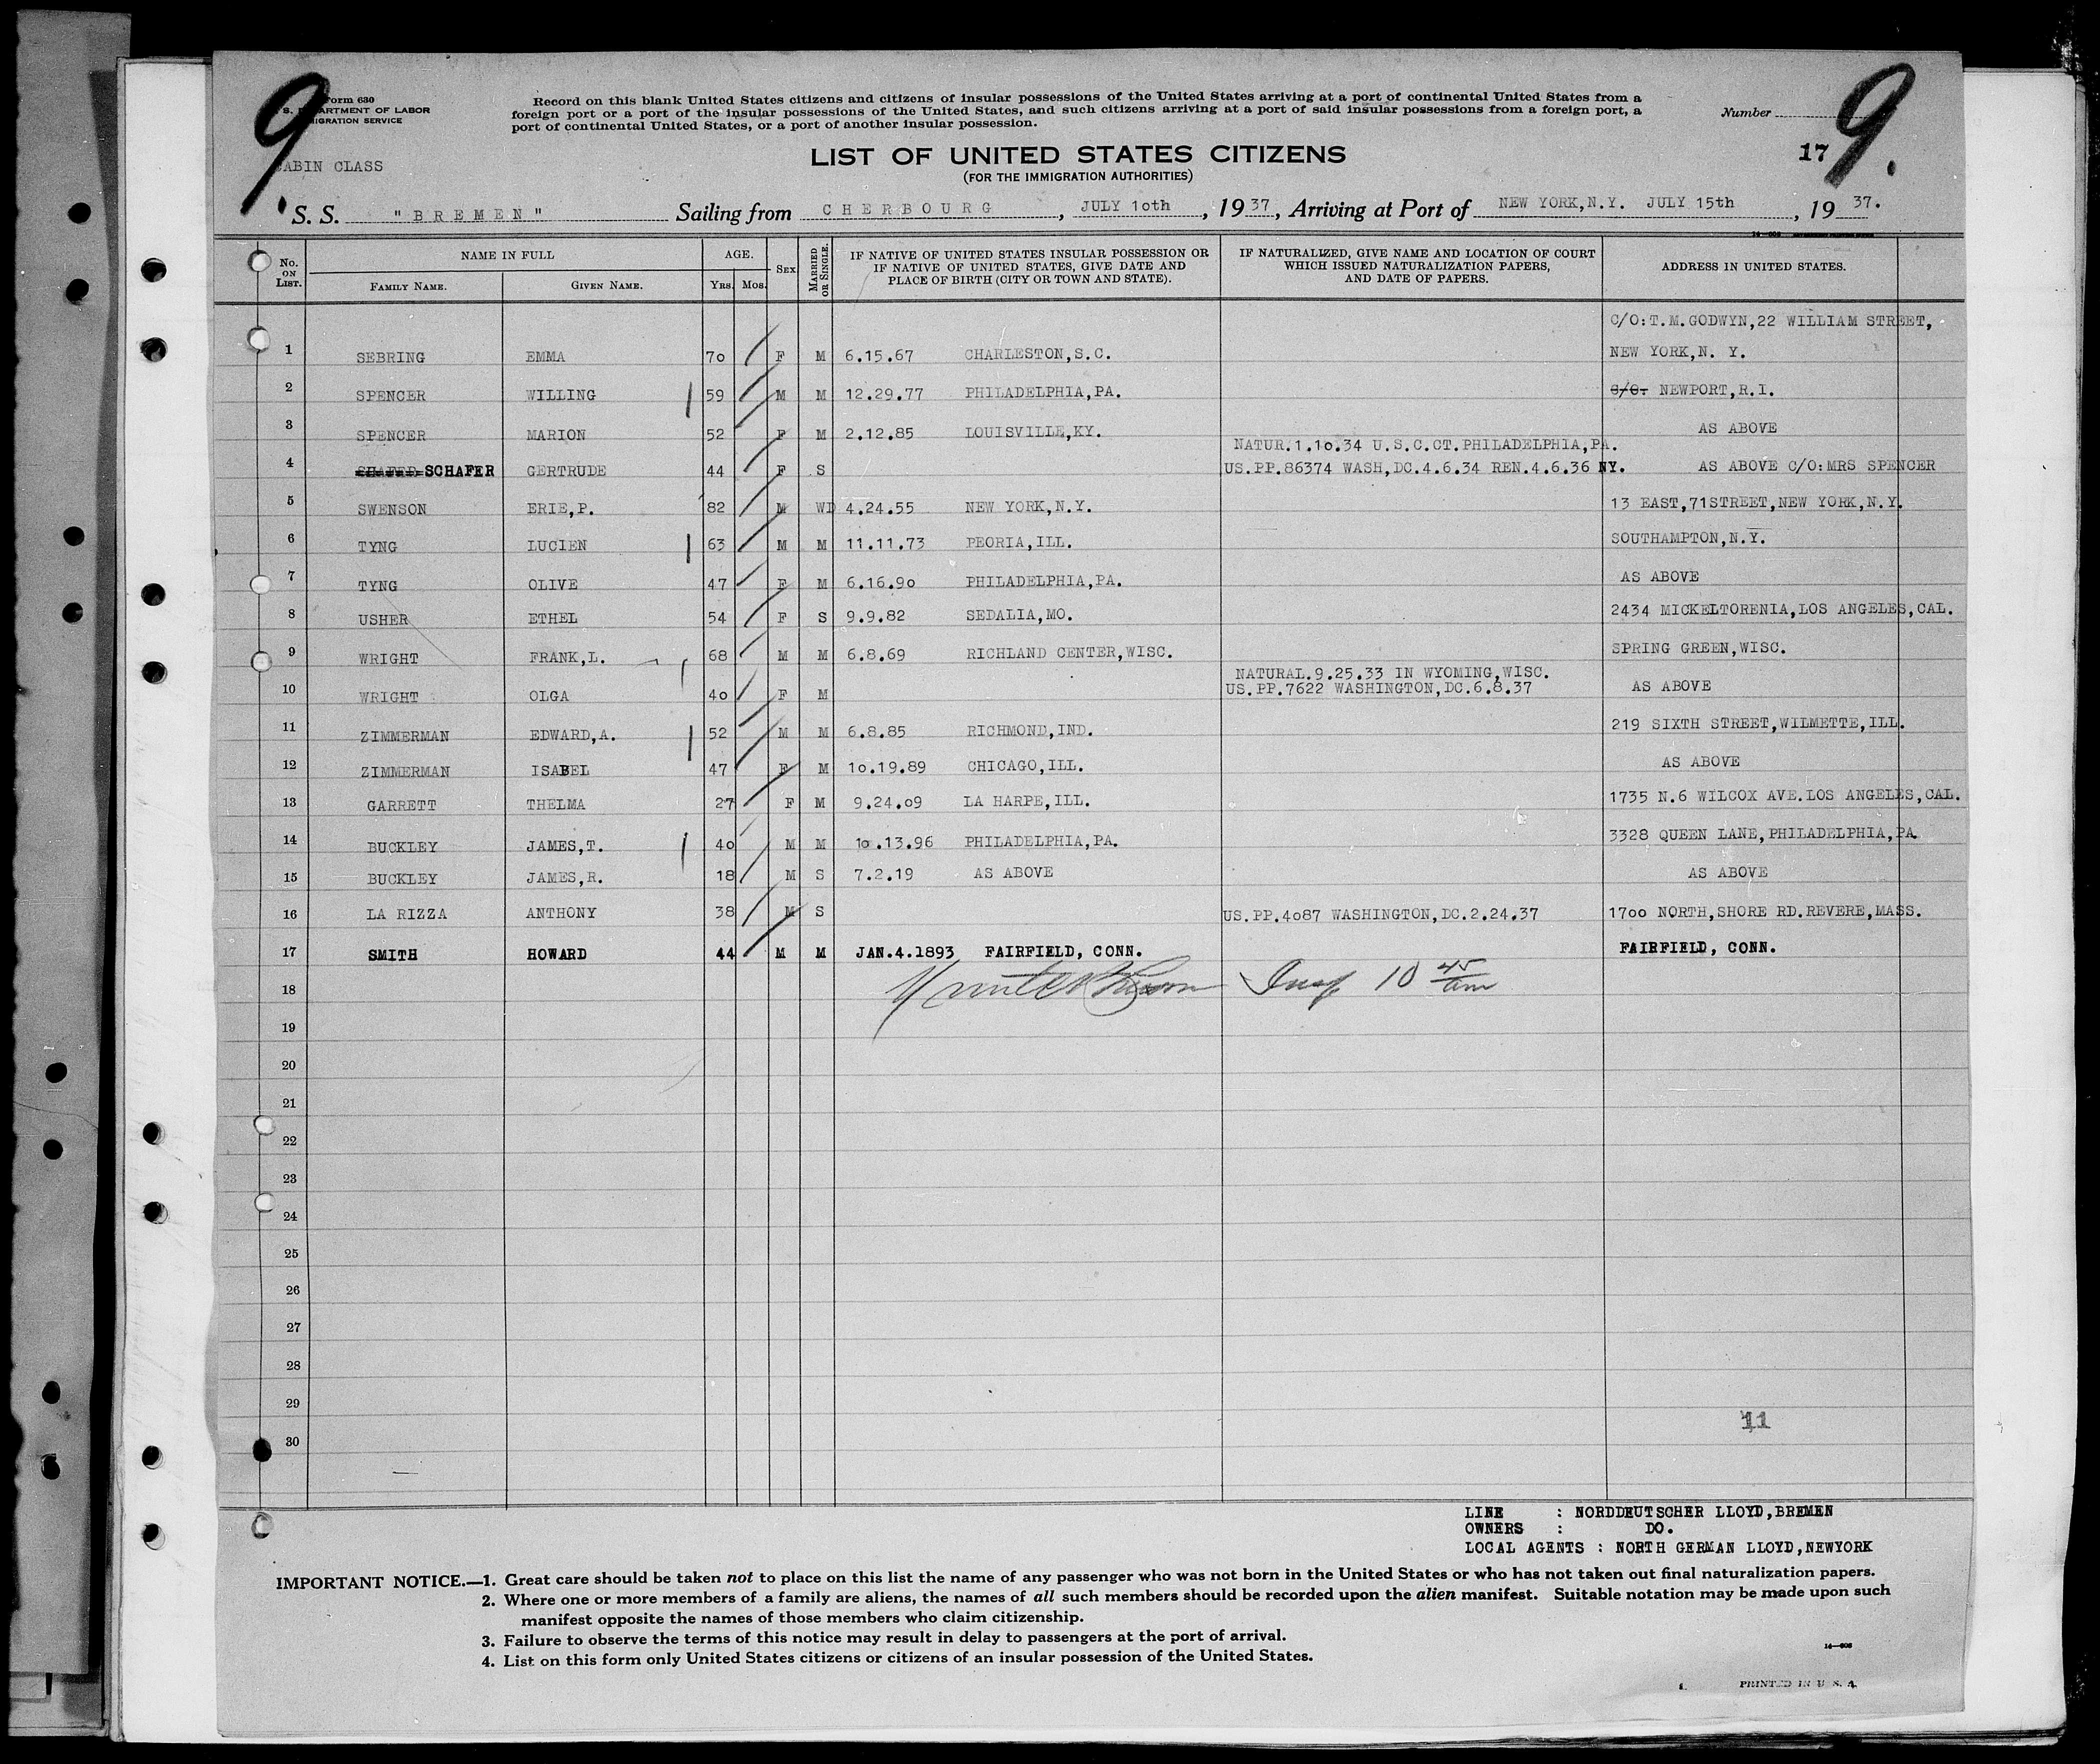 9. 9.
Form 630
S. DEPARTMENT OF LABOR
IMMIGRATION SERVICE
Record on this blank United States citizens and citizens of insular possessions of the United States arriving at a port of continental United States from a
foreign port or a port of the insular possessions of the United States, and such citizens arriving at a port of said insular possessions from a foreign port, a
port of continental United States, or a port of another insular possession.
Number
CABIN CLASS
LIST OF UNITED STATES CITIZENS
17
(FOR THE IMMIGRATION AUTHORITIES)
S. S. "BREMEN" Sailing from CHERBOURG, JULY 10th, 1937, Arriving at Port of NEW YORK,N.Y. JULY 15th, 1937.
No. ON LIST. NAME IN FULL FAMILY NAME. GIVEN NAME. AGE. YRS. MOS. SEX MARRIED OR SINGLE. IF NATIVE OF UNITED STATES INSULAR POSSESSION OR IF NATIVE OF UNITED STATES, GIVE DATE AND PLACE OF BIRTH (CITY OR TOWN AND STATE). IF NATURALIZED, GIVE NAME AND LOCATION OF COURT WHICH ISSUED NATURALIZATION PAPERS, AND DATE OF PAPERS. ADDRESS IN UNITED STATES.
C/O:T.M.GODWYN,22 WILLIAM STREET,
1 SEBRING EMMA 70 F M 6.15.67 CHARLESTON,S.C. NEW YORK,N. Y.
2 SPENCER WILLING 59 M M 12.29.77 PHILADELPHIA,PA. C/O: NEWPORT,R.I.
3 SPENCER MARION 52 F M 2.12.85 LOUISVILLE,KY. AS ABOVE
NATUR.1.10.34 U.S.C.CT.PHILADELPHIA,PA.
4 SHAFER SCHAFER GERTRUDE 44 F S US.PP.86374 WASH,DC.4.6.34 REN.4.6.36 NY. AS ABOVE C/O:MRS SPENCER
5 SWENSON ERIE,P. 82 M WD 4.24.55 NEW YORK,N.Y. 13 EAST,71STREET,NEW YORK,N.Y.
6 TYNG LUCIEN 63 M M 11.11.73 PEORIA,ILL. SOUTHAMPTON,N.Y.
7 TYNG OLIVE 47 F M 6.16.90 PHILADELPHIA,PA. AS ABOVE
8 USHER ETHEL 54 F S 9.9.82 SEDALIA,MO. 2434 MICKELTORENIA,LOS ANGELES,CAL.
9 WRIGHT FRANK,L. 68 M M 6.8.69 RICHLAND CENTER,WISC. SPRING GREEN,WISC.
NATURAL.9.25.33 IN WYOMING,WISC.
10 WRIGHT OLGA 40 F M US.PP.7622 WASHINGTON,DC.6.8.37 AS ABOVE
11 ZIMMERMAN EDWARD,A. 52 M M 6.8.85 RICHMOND,IND. 219 SIXTH STREET,WILMETTE,ILL.
12 ZIMMERMAN ISABEL 47 F M 10.19.89 CHICAGO,ILL. AS ABOVE
13 GARRETT THELMA 27 F M 9.24.09 LA HARPE,ILL. 1735 N.6 WILCOX AVE.LOS ANGELES,CAL.
14 BUCKLEY JAMES,T. 40 M M 10.13.96 PHILADELPHIA,PA. 3328 QUEEN LANE,PHILADELPHIA,PA
15 BUCKLEY JAMES,R. 18 M S 7.2.19 AS ABOVE AS ABOVE
16 LA RIZZA ANTHONY 38 M S US.PP.4087 WASHINGTON,DC.2.24.37 1700 NORTH,SHORE RD.REVERE,MASS.
17 SMITH HOWARD 44 M M JAN.4.1893 FAIRFIELD, CONN. FAIRFIELD, CONN.
18 Insp 10 45 am
19
20
21
22
23
24
25
26
27
28
29
11
30
LINE : NORDDEUTSCHER LLOYD,BREMEN
OWNERS : DO.
LOCAL AGENTS : NORTH GERMAN LLOYD,NEWYORK
IMPORTANT NOTICE.—1. Great care should be taken not to place on this list the name of any passenger who was not born in the United States or who has not taken out final naturalization papers.
2. Where one or more members of a family are aliens, the names of all such members should be recorded upon the alien manifest. Suitable notation may be made upon such
manifest opposite the names of those members who claim citizenship.
3. Failure to observe the terms of this notice may result in delay to passengers at the port of arrival.
4. List on this form only United States citizens or citizens of an insular possession of the United States.
14—608
PRINTED IN U. S. A.